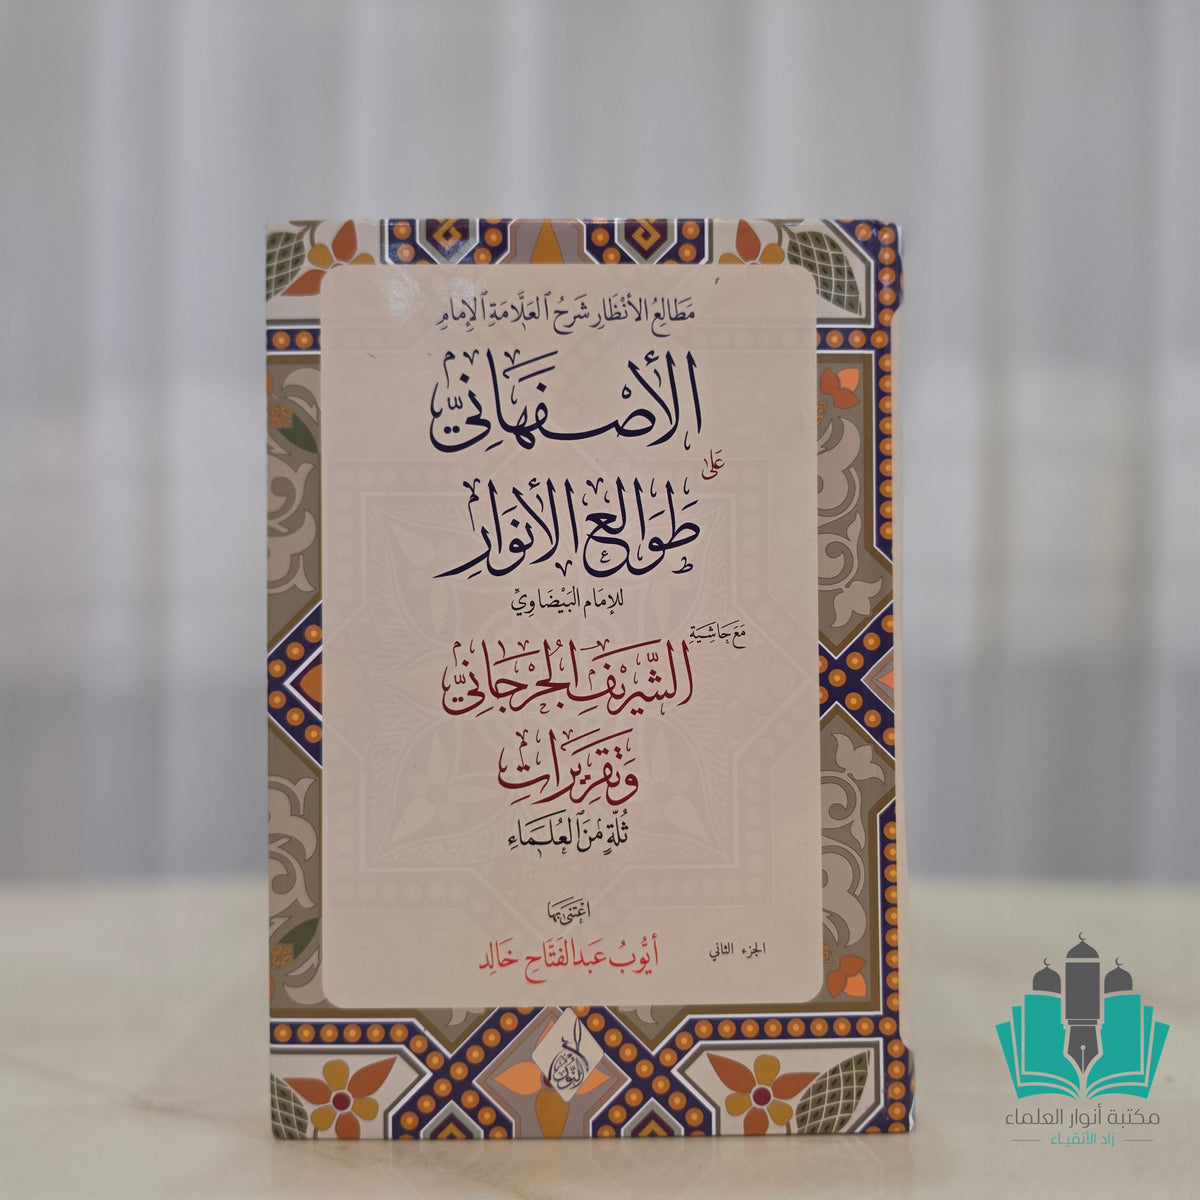 مَطَالِعُ الأَنْظَارِ شَرْحُ ٱلعَلَّامَةِ ٱلإِمَامِ
الأَصْفَهَانِيِّ
عَلىٰ
طَوَالِعِ الأَنوَارِ
للإِمَامِ البَيْضَاوِيِّ
مَعَ حَاشِيَةِ
الشَّرِيفِ الجُرْجَانِيِّ
وَتَقْرِيرَاتِ
ثُلَّةٍ مِنَ ٱلعُلَمَاءِ
اعْتَنَى بِهَا
أَيُّوبُ عَبدالفَتَّاحِ خَالِد
الجزء الثاني
النور
مكتبة أنوار العلماء
زاد الأتقياء